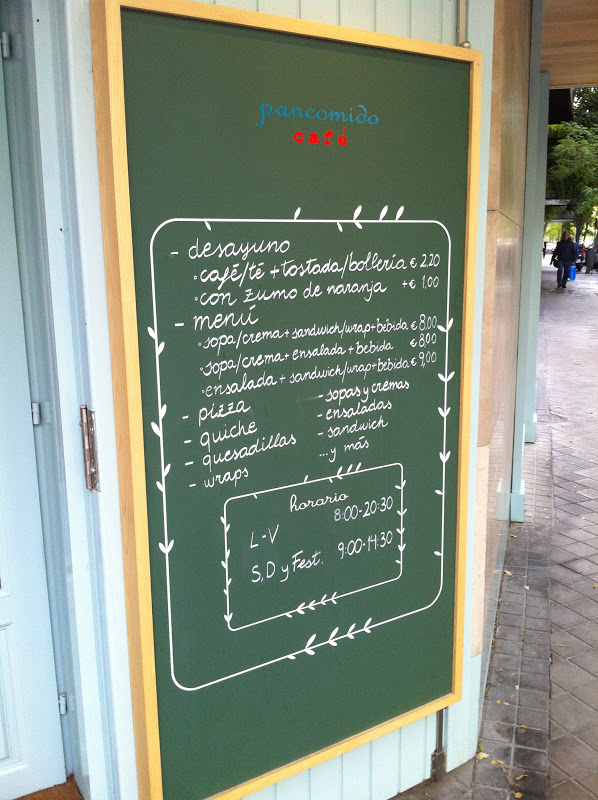 pancomido
café
- desayuno
• café/té + tostada/bollería € 2,20
• con zumo de naranja +€ 1,00
- menú
• sopa/crema + sandwich/wrap + bebida € 8,00
• sopa/crema + ensalada + bebida €8,00
• ensalada + sandwich/wrap + bebida € 9,00
- pizza
- quiche
- quesadillas
- wraps
- sopas y cremas
- ensaladas
- sandwich
...y más
horario
L-V 8:00-20:30
S,D y Fest. 9:00-14:30